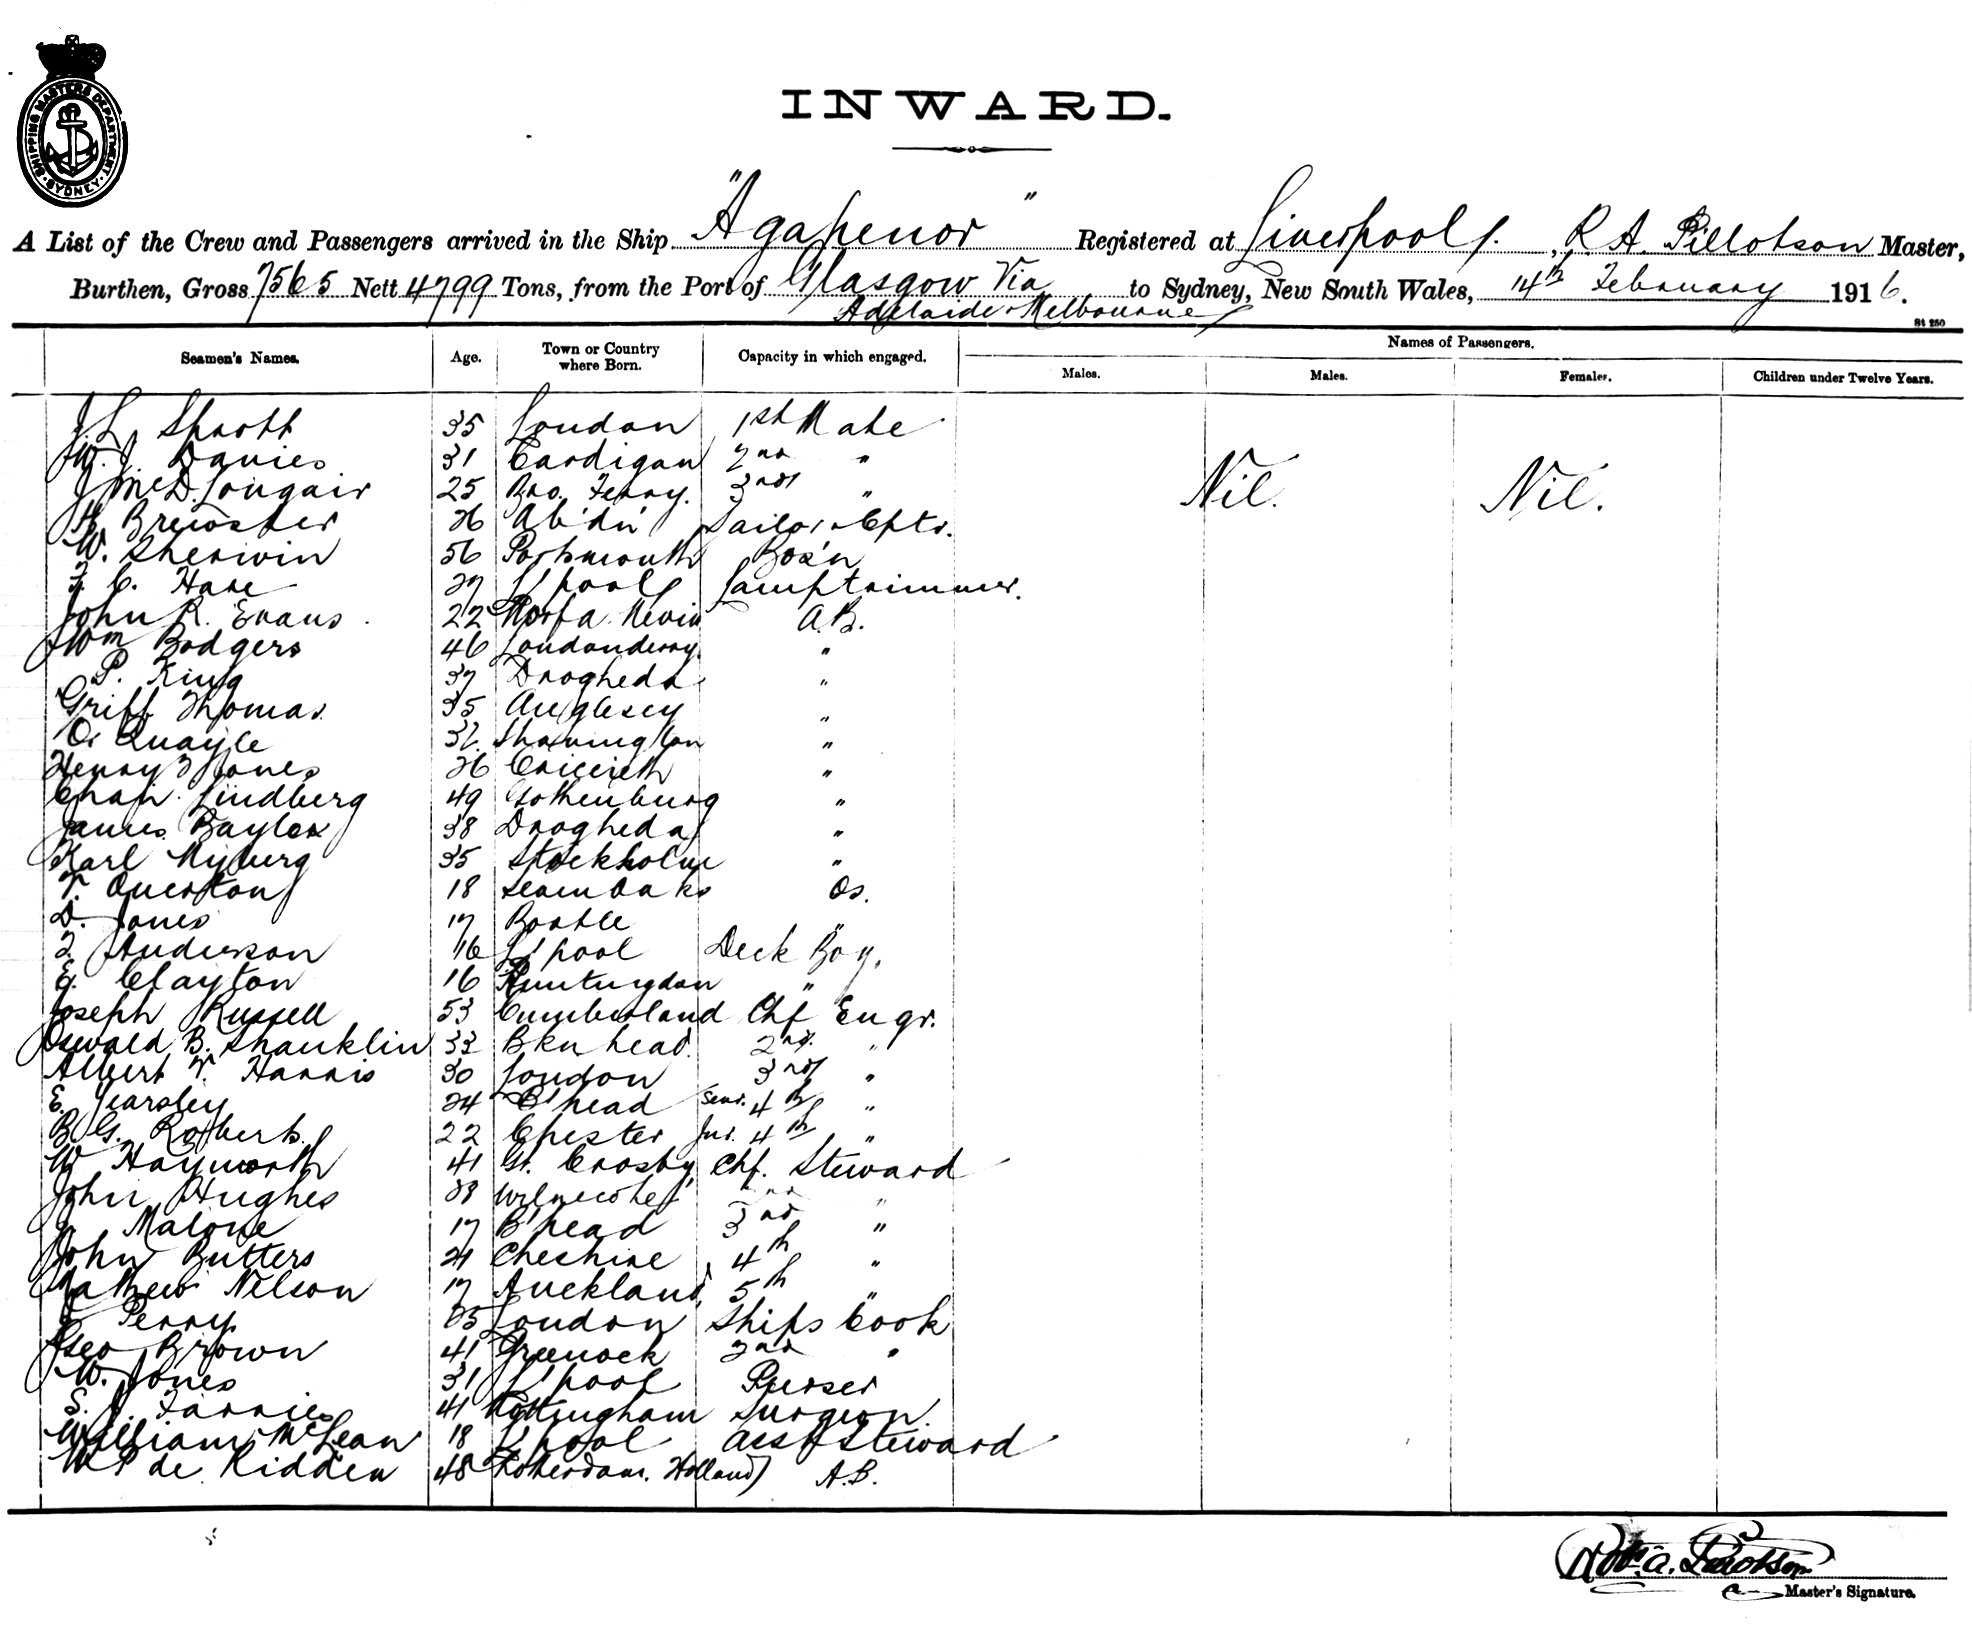 SHIPPING MASTERS DEPARTMENT SYDNEY
INWARD.
A List of the Crew and Passengers arrived in the Ship "Agapenor" Registered at Liverpool, R A Pillotson Master,
Burthen, Gross 7565 Nett 4799 Tons, from the Port of Glasgow Via to Sydney, New South Wales, 14th February 1916.
Adelaide & Melbourne
St 250
Seamen's Names. Age. Town or Country where Born. Capacity in which engaged. Names of Passengers.
Males. Males. Females. Children under Twelve Years.
J. L. Shortt 35 London 1st Mate
W. J. Davies 31 Cardigan 2nd "
J McD. Longair 25 Bro. Ferry. 3rd "
Nil. Nil.
Brewster 26 Ab'dn' Sailor & Cptr.
W. Sherwin 56 Portsmouth Bos'n
F. C. Hare 27 L'pool Lamptrimmer.
John R. Evans 22 Morfa Nevin A.B.
Wm Rodgers 46 Londonderry "
P. King 37 Drogheda "
Griff Thomas 35 Anglesey "
O. Quayle 32 "
Henry J Jones 26 Criccieth "
Chas. Lindberg 49 Gothenburg "
James Baylex 38 Drogheda "
Karl Nyberg 35 Stockholm "
T. 18 Os.
D. Jones 17 Bootle "
F. Anderson 16 L'pool Deck Boy.
E. Clayton 16 Huntingdon "
Joseph Russell 53 Cumberland Chf Engr.
Oswald B. Shanklin 33 B'ken head. 2nd. "
Albert T. Harris 30 London 3rd "
E. Yearsley 24 B'head Senr. 4th "
B. G. Roberts 22 Chester Jnr. 4th "
W Hayworth 41 Gt. Crosby Chf. Steward
John Hughes 28 2nd "
J Malone 17 B'head 3rd "
John Butters 21 Cheshire 4th "
Mathew Nelson 17 Auckland, 5th "
Perry 25 London Ships Cook
Geo Brown 41 Greenock 2nd "
W. Jones 31 L'pool Purser
S. J. Farries 41 Nottingham Surgeon.
William McLean 18 L'pool Asst Steward
W P de Ridden 48 Rotterdam. Holland) A.B.
Master's Signature.